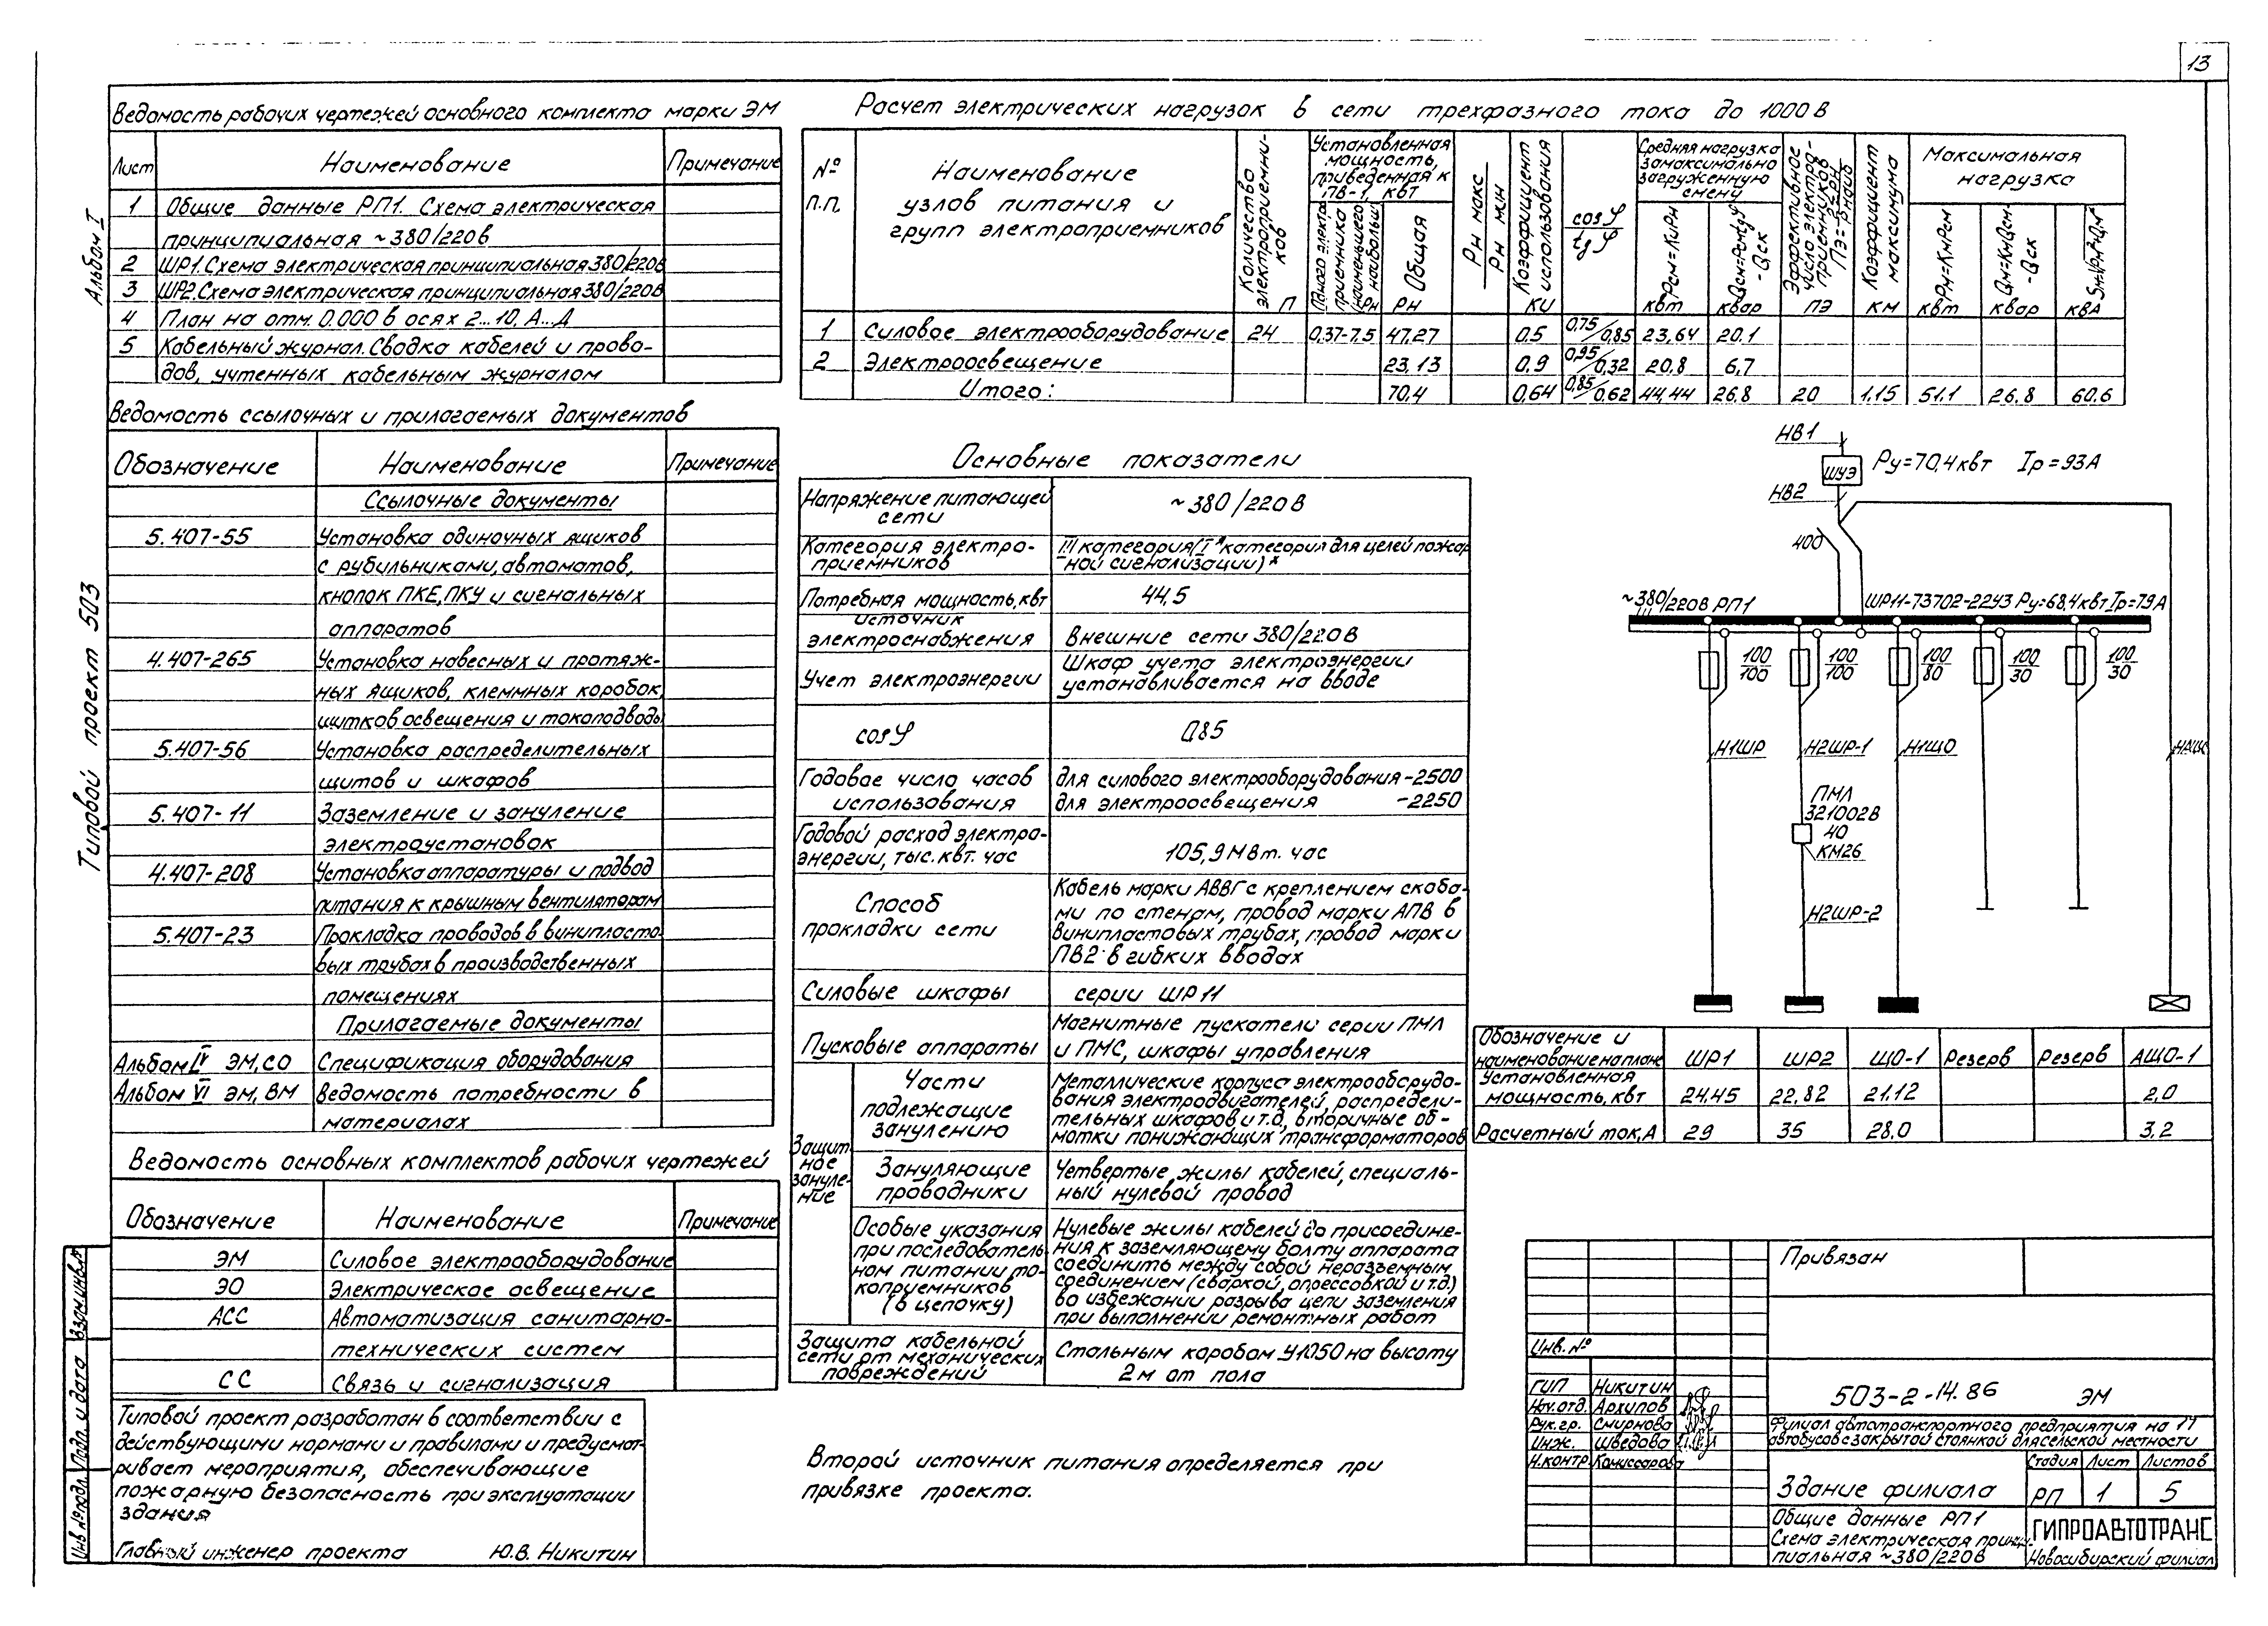 13
Альбом I
Типовой проект 503
Ведомость рабочих чертежей основного комплекта марки ЭМ
Лист Наименование Примечание
1 Общие данные РП1. Схема электрическая
принципиальная ~380/220в
2 ШР1. Схема электрическая принципиальная 380/220в
3 ШР2. Схема электрическая принципиальная 380/220в
4 План на отм. 0.000 в осях 2...10, А...Д
5 Кабельный журнал. Сводка кабелей и прово-
дов, учтенных кабельным журналом
Ведомость ссылочных и прилагаемых документов
Обозначение Наименование Примечание
Ссылочные документы
5.407-55 Установка одиночных ящиков
с рубильниками, автоматов,
кнопок ПКЕ, ПКУ и сигнальных
аппаратов
4.407-265 Установка навесных и протяж-
ных ящиков, клеммных коробок,
щитков освещения и токоподводы
5.407-56 Установка распределительных
щитов и шкафов
5.407-11 Заземление и зануление
электроустановок
4.407-208 Установка аппаратуры и подвод
питания к крышным вентиляторам
5.407-23 Прокладка проводов в винипласто-
вых трубах в производственных
помещениях
Прилагаемые документы
Альбом IV ЭМ,СО Спецификация оборудования
Альбом VI ЭМ, ВМ Ведомость потребности в
материалах
Ведомость основных комплектов рабочих чертежей
Обозначение Наименование Примечание
ЭМ Силовое электрооборудование
ЭО Электрическое освещение
АСС Автоматизация санитарно-
технических систем
СС Связь и сигнализация
Типовой проект разработан в соответствии с
действующими нормами и правилами и предусмат-
ривает мероприятия, обеспечивающие
пожарную безопасность при эксплуатации
здания
Главный инженер проекта Ю.В. Никитин
Инв № подл. Подп. и дата Взам.инв.№
Расчет электрических нагрузок в сети трехфазного тока до 1000 В
№ п.п.
Наименование
узлов питания и
групп электроприемников
Количество электроприемни-ков п
Установленная
мощность,
приведенная к
ПВ-1, квт
Одного электро-приемника (наименьшего наибольш.) Рн
Общая Рн
Рн макс / Рн мин
Коэффициент использования Ки
cosφ / tgφ
Средняя нагрузка
за максимально
загруженную
смену
Рсм=КиРн квт
Qсм=Рсмtgφ -Qск квар
Эффективное число электро-приемников пэ
Коэффициент максимума Км
Максимальная
нагрузка
Рм=КмРсм квт
Qм=КмQсм -Qск квар
Sм=√Рм²+Qм² кВА
1 Силовое электрооборудование 24 0,37-7,5 47,27 0.5 0,75/0,85 23,64 20.1
2 Электроосвещение 23,13 0,9 0,95/0,32 20.8 6,7
Итого: 70.4 0,64 0,85/0,62 44,44 26.8 20 1,15 51.1 26.8 60.6
Основные показатели
Напряжение питающей
сети
~380/220В
Категория электро-
приемников
III категория (I* категория для целей пожар-
ной сигнализации)*
Потребная мощность, квт 44,5
Источник
электроснабжения
Внешние сети 380/220В
Учет электроэнергии
Шкаф учета электроэнергии
устанавливается на вводе
cosφ 0,85
Годовое число часов
использования
для силового электрооборудования -2500
для электроосвещения -2250
Годовой расход электро-
энергии, тыс. квт. час
105,9 МВт. час
Способ
прокладки сети
Кабель марки АВВГ с креплением скоба-
ми по стенам, провод марки АПВ в
винипластовых трубах, провод марки
ПВ2 в гибких вводах
Силовые шкафы серии ШР11
Пусковые аппараты
Магнитные пускатели серии ПМЛ
и ПМС, шкафы управления
Защит-
ное
зануле-
ние
Части
подлежащие
занулению
Металлические корпуса электрооборудо-
вания электродвигателей, распредели-
тельных шкафов и т.д, вторичные об-
мотки понижающих трансформаторов
Зануляющие
проводники
Четвертые жилы кабелей, специаль-
ный нулевой провод
Особые указания
при последователь-
ном питании то-
коприемников
(в цепочку)
Нулевые жилы кабелей до присоедине-
ния к заземляющему болту аппарата
соединить между собой неразъемным
соединением (сваркой, опрессовкой и т.д.)
во избежании разрыва цепи заземления
при выполнении ремонтных работ
Защита кабельной
сети от механических
повреждений
Стальным коробом У1050 на высоту
2 м от пола
Второй источник питания определяется при
привязке проекта.
НВ1
ШУЭ Ру=70,4 квт Iр=93А
НВ2
400
~380/220в РП1 ШР11-73702-22У3 Ру=68,4 квт Iр=79А
100/100 100/100 100/80 100/30 100/30
Н1ШР Н2ШР-1 Н1ЩО
ПМЛ
321002В
40
КМ26
Н2ШР-2
Обозначение и
наименование на плане
ШР1 ШР2 ЩО-1 Резерв Резерв АЩО-1
Установленная
мощность, квт
24,45 22,82 21,12 2,0
Расчетный ток, А 29 35 28.0 3,2
Привязан
Инв. №
ГИП Никитин
Нач.отд. Архипов
Рук.гр. Смирнова
Инж. Шведова
Н.контр. Комиссарова
503-2-14.86 ЭМ
Филиал автотранспортного предприятия на 14
автобусов с закрытой стоянкой для сельской местности
Здание филиала
Стадия Лист Листов
РП 1 5
Общие данные РП1
Схема электрическая принци-
пиальная ~380/220В
ГИПРОАВТОТРАНС
Новосибирский филиал